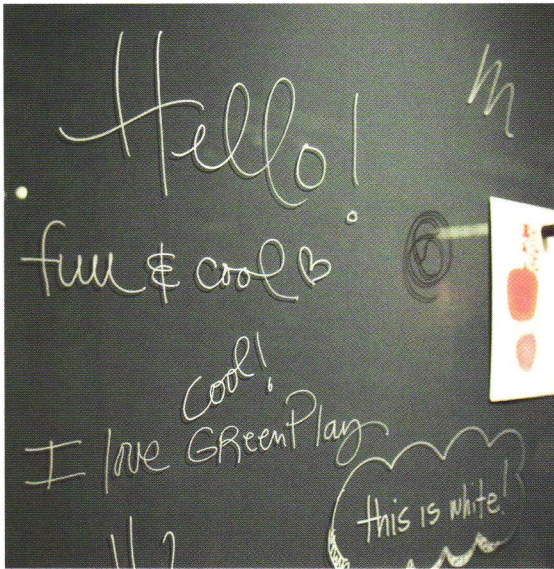 Hello!
fun & cool ♡
cool!
I love GReenPlay
this is white!